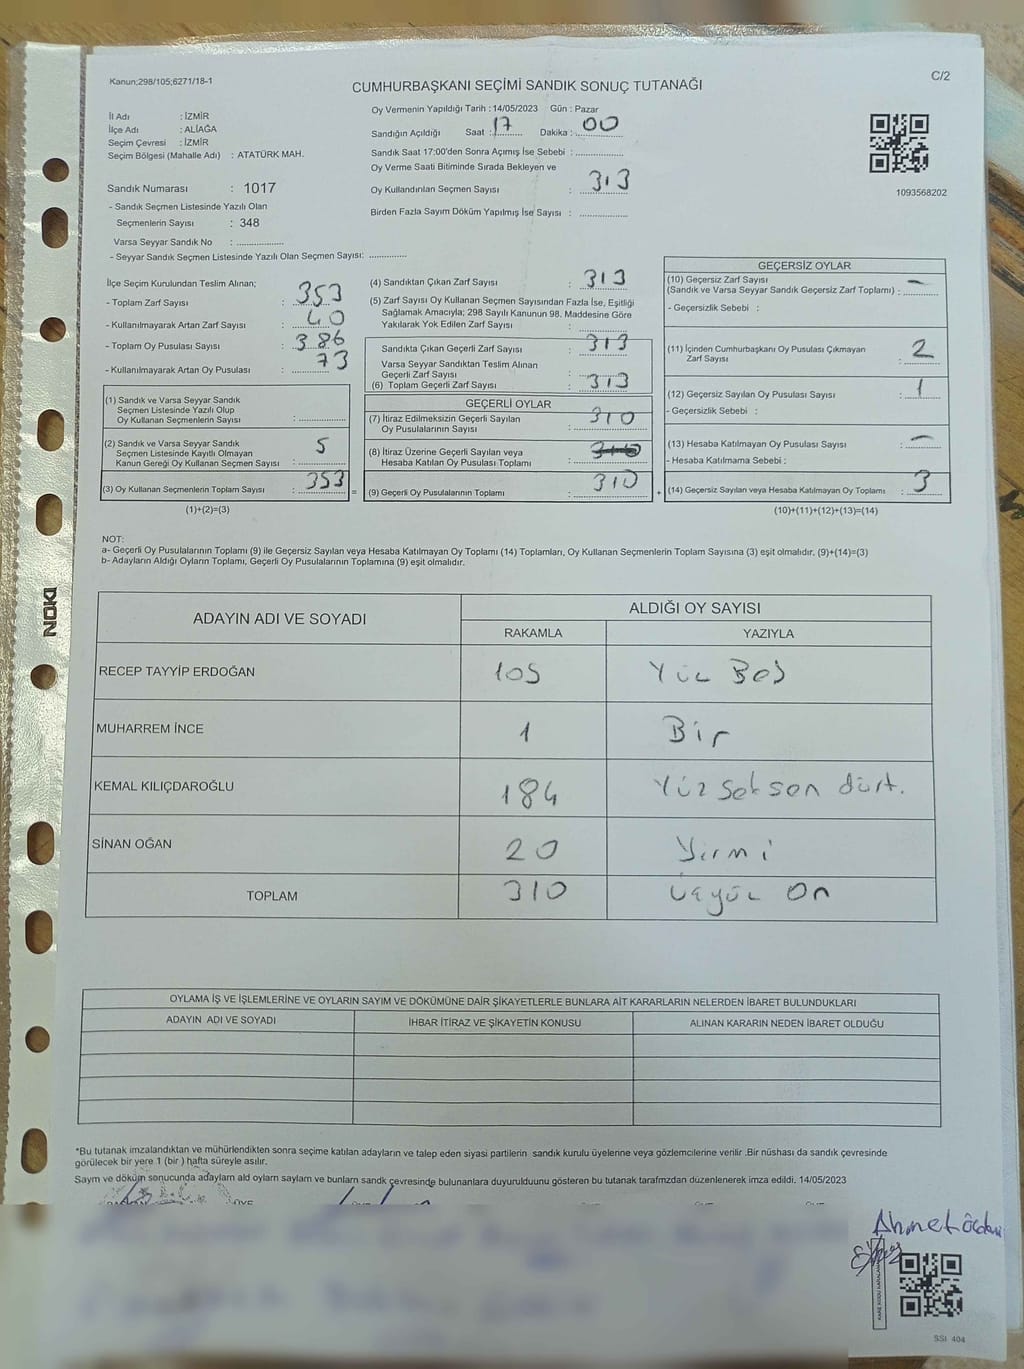 Kanun;298/105;6271/18-1
C/2
CUMHURBAŞKANI SEÇİMİ SANDIK SONUÇ TUTANAĞI
İl Adı : İZMİR
İlçe Adı : ALİAĞA
Seçim Çevresi : İZMİR
Seçim Bölgesi (Mahalle Adı) : ATATÜRK MAH.
Sandık Numarası : 1017
- Sandık Seçmen Listesinde Yazılı Olan
Seçmenlerin Sayısı : 348
Varsa Seyyar Sandık No : ................
- Seyyar Sandık Seçmen Listesinde Yazılı Olan Seçmen Sayısı: ............
Oy Vermenin Yapıldığı Tarih :14/05/2023 Gün : Pazar
Sandığın Açıldığı Saat : 17 Dakika : 00
Sandık Saat 17:00'den Sonra Açımış İse Sebebi : ................
Oy Verme Saati Bitiminde Sırada Bekleyen ve
Oy Kullandırılan Seçmen Sayısı : 313
Birden Fazla Sayım Döküm Yapılmış İse Sayısı : ................
1093568202
İlçe Seçim Kurulundan Teslim Alınan;
- Toplam Zarf Sayısı : 353
- Kullanılmayarak Artan Zarf Sayısı : 40
- Toplam Oy Pusulası Sayısı : 386
- Kullanılmayarak Artan Oy Pusulası : 73
(1) Sandık ve Varsa Seyyar Sandık
Seçmen Listesinde Yazılı Olup
Oy Kullanan Seçmenlerin Sayısı : ................
(2) Sandık ve Varsa Seyyar Sandık
Seçmen Listesinde Kayıtlı Olmayan
Kanun Gereği Oy Kullanan Seçmen Sayısı : 5
(3) Oy Kullanan Seçmenlerin Toplam Sayısı : 353 =
(1)+(2)=(3)
(4) Sandıktan Çıkan Zarf Sayısı : 313
(5) Zarf Sayısı Oy Kullanan Seçmen Sayısından Fazla İse, Eşitliği
Sağlamak Amacıyla; 298 Sayılı Kanunun 98. Maddesine Göre
Yakılarak Yok Edilen Zarf Sayısı : ................
Sandıkta Çıkan Geçerli Zarf Sayısı : 313
Varsa Seyyar Sandıktan Teslim Alınan
Geçerli Zarf Sayısı : ................
(6) Toplam Geçerli Zarf Sayısı : 313
GEÇERLİ OYLAR
(7) İtiraz Edilmeksizin Geçerli Sayılan
Oy Pusulalarının Sayısı : 310
(8) İtiraz Üzerine Geçerli Sayılan veya
Hesaba Katılan Oy Pusulası Toplamı : 310
(9) Geçerli Oy Pusulalarının Toplamı : 310 +
GEÇERSİZ OYLAR
(10) Geçersiz Zarf Sayısı
(Sandık ve Varsa Seyyar Sandık Geçersiz Zarf Toplamı) : —
- Geçersizlik Sebebi :
(11) İçinden Cumhurbaşkanı Oy Pusulası Çıkmayan
Zarf Sayısı : 2
(12) Geçersiz Sayılan Oy Pusulası Sayısı : 1
- Geçersizlik Sebebi :
(13) Hesaba Katılmayan Oy Pusulası Sayısı : —
- Hesaba Katılmama Sebebi :
(14) Geçersiz Sayılan veya Hesaba Katılmayan Oy Toplamı : 3
(10)+(11)+(12)+(13)=(14)
NOT:
a- Geçerli Oy Pusulalarının Toplamı (9) ile Geçersiz Sayılan veya Hesaba Katılmayan Oy Toplamı (14) Toplamları, Oy Kullanan Seçmenlerin Toplam Sayısına (3) eşit olmalıdır. (9)+(14)=(3)
b- Adayların Aldığı Oyların Toplamı, Geçerli Oy Pusulalarının Toplamına (9) eşit olmalıdır.
ADAYIN ADI VE SOYADI ALDIĞI OY SAYISI
RAKAMLA YAZIYLA
RECEP TAYYİP ERDOĞAN 105 Yüz Beş
MUHARREM İNCE 1 Bir
KEMAL KILIÇDAROĞLU 184 Yüz seksen dört.
SİNAN OĞAN 20 Yirmi
TOPLAM 310 Üçyüz On
OYLAMA İŞ VE İŞLEMLERİNE VE OYLARIN SAYIM VE DÖKÜMÜNE DAİR ŞİKAYETLERLE BUNLARA AİT KARARLARIN NELERDEN İBARET BULUNDUKLARI
ADAYIN ADI VE SOYADI İHBAR İTİRAZ VE ŞİKAYETİN KONUSU ALINAN KARARIN NEDEN İBARET OLDUĞU
*Bu tutanak imzalandıktan ve mühürlendikten sonra seçime katılan adayların ve talep eden siyasi partilerin sandık kurulu üyelerine veya gözlemcilerine verilir .Bir nüshası da sandık çevresinde
görülecek bir yere 1 (bir ) hafta süreyle asılır.
Sayım ve döküm sonucunda adayların ald oyların sayıları ve bunların sandk çevresinde bulunanlara duyurulduunu gösteren bu tutanak tarafmzdan düzenlenerek imza edildi. 14/05/2023
Ahmet
SSI 404
NOKI